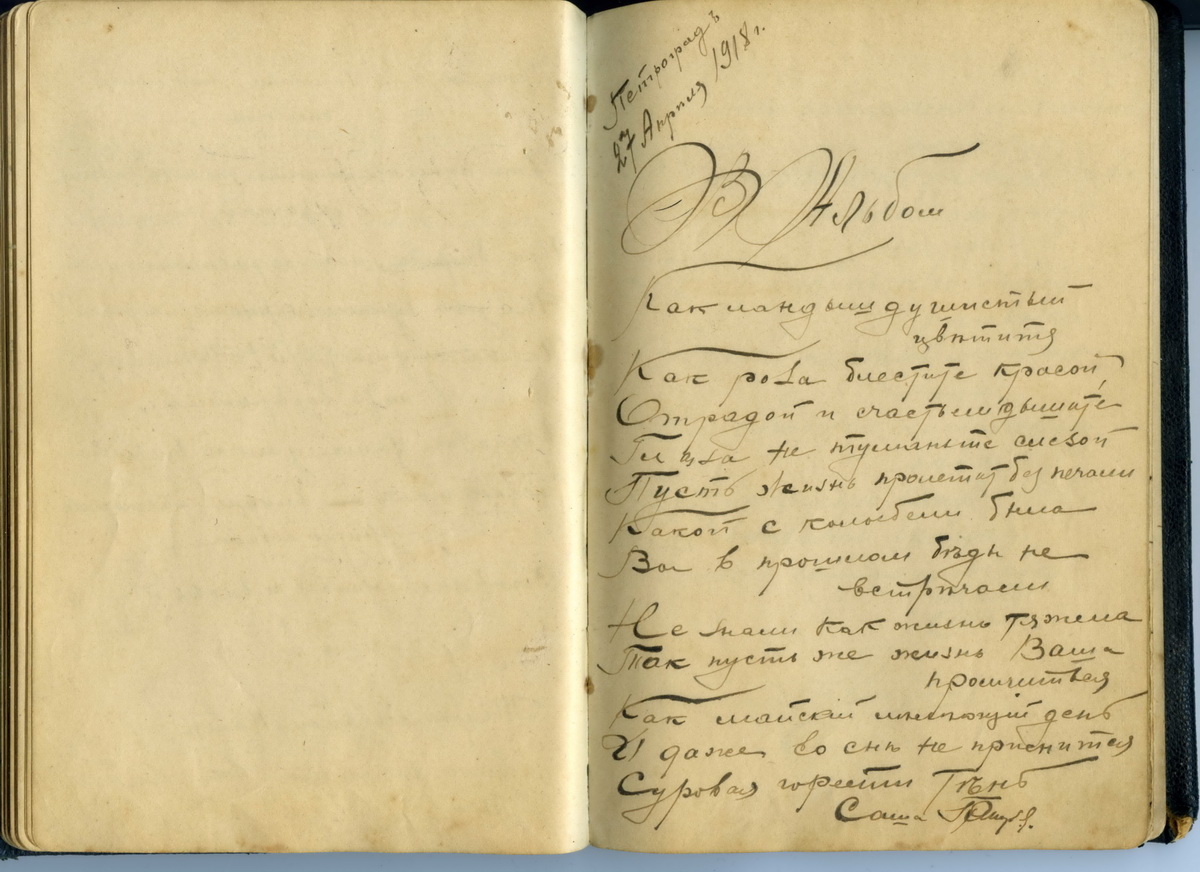 Петроградъ
27 Апреля 1918 г.
В Альбом
Как ландыш душистый
цвѣтите
Как роза блестите красой,
Отрадой и счастьем дышите
Глаза не туманьте слезой
Пусть жизнь пролетит без печали
Какой с колыбели была
Вы в прошлом бѣды не
встрѣчали
Не знали как жизнь тяжела
Так пусть же жизнь Ваша
промчится
Как майский день
И даже во снѣ не приснится
Суровая горести тѣнь
Саша